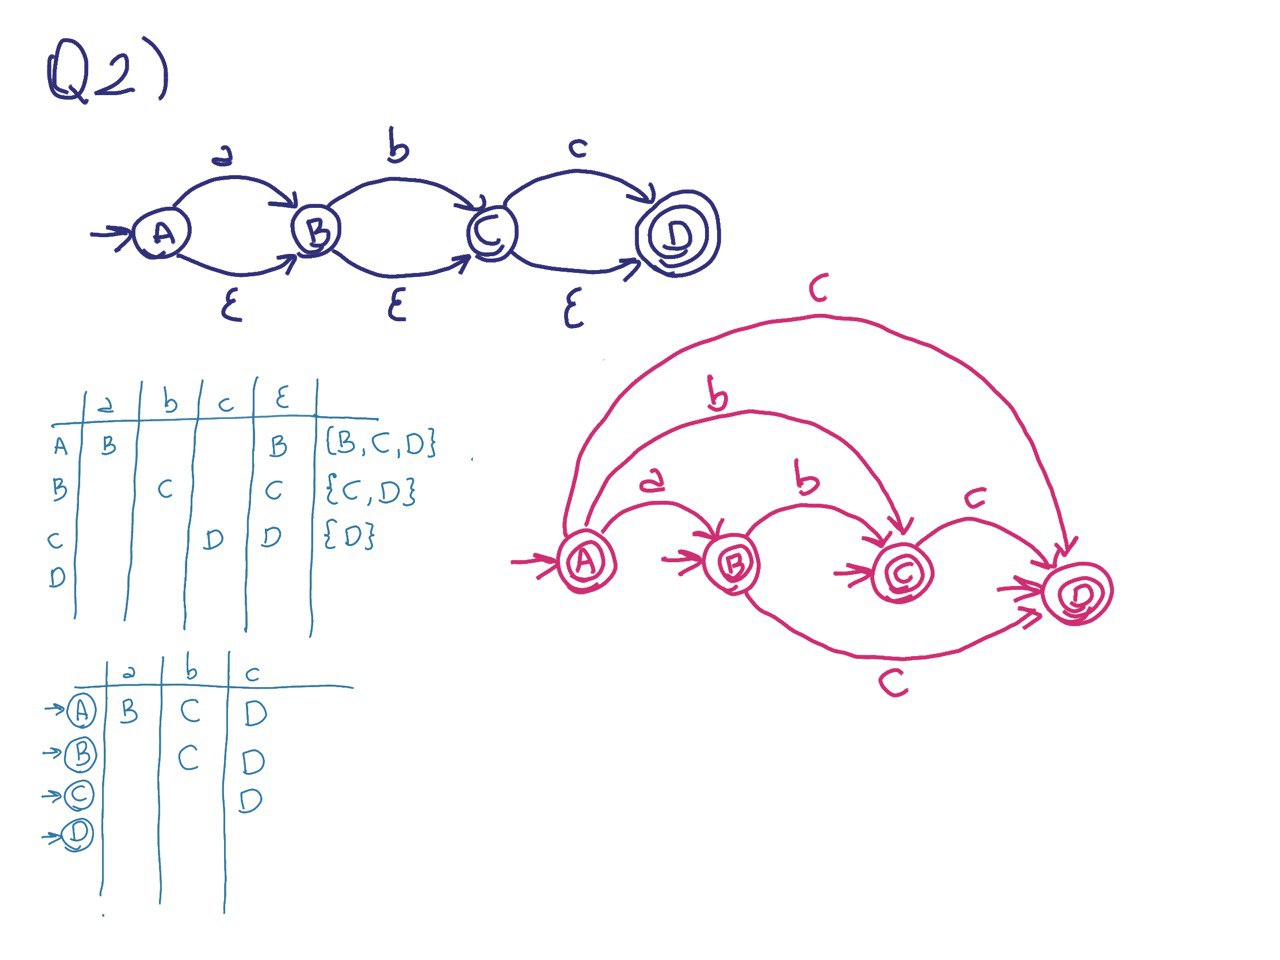 Q2)
a b c
A B C D
ε ε ε
a b c ε
A B B {B,C,D}
B C C {C,D}
C D D {D}
D
a b c
A B C D
B C D
C D
D
c
b
a b c
A B C D
c